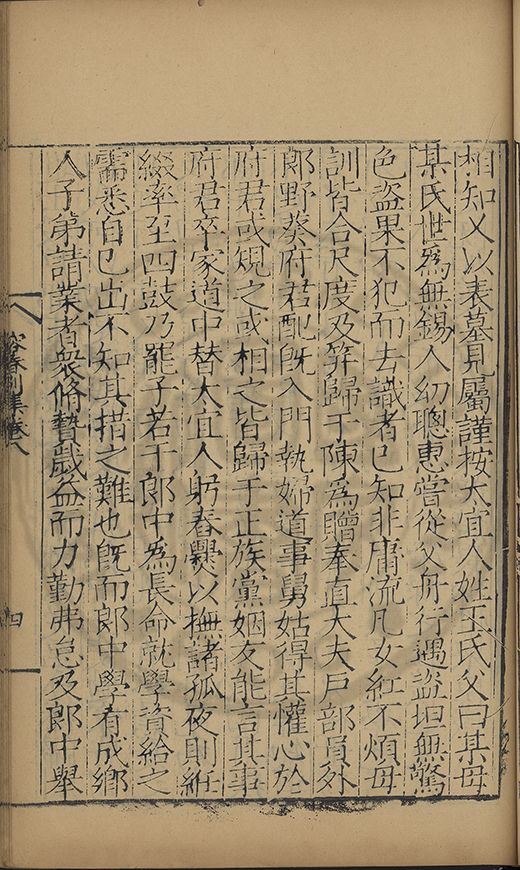 相知又以表墓見屬謹按太宜人姓王氏父曰某母
某氏世爲無錫人幼聰惠嘗從父舟行遇盜坦無驚
色盜果不犯而去識者已知非庸流凡女紅不煩母
訓皆合尺度及笄歸于陳爲贈奉直大夫戶部員外
郎野葵府君配旣入門執婦道事舅姑得其懽心於
府君或規之或相之皆歸于正族黨姻友能言其事
府君卒家道中替太宜人躬舂爨以撫諸孤夜則紝
綴率至四鼓乃罷子若干郎中爲長命就學資給之
需悉自己出不知其措之難也旣而郎中學有成鄉
人子弟請業者衆脩贄歲益而力勤弗怠及郎中舉
容春別集卷八
四